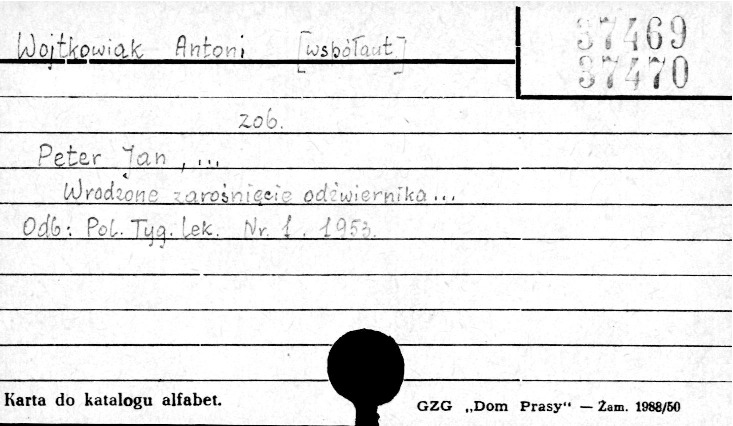 Wojtkowiak Antoni [współaut]
37469
37470
zob.
Peter Jan, ...
Wrodzone zarośnięcie odźwiernika...
Odb: Pol. Tyg. lek. Nr. 1. 1953.
Karta do katalogu alfabet.
GZG „Dom Prasy“ — Żam. 1988/50